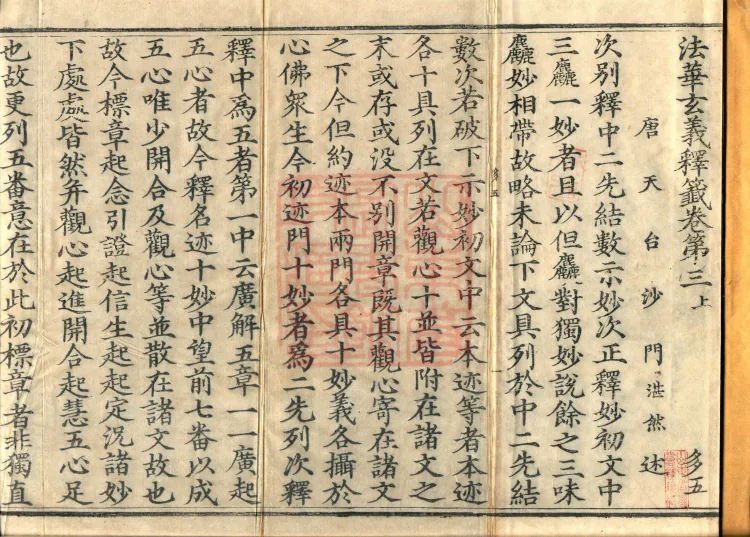 法華玄義釋籤卷第三上
多五
唐天台沙門湛然述
次別釋中二先結數示妙次正釋妙初文中
三麤一妙者且以但麤對獨妙說餘之三味
麤妙相帶故略未論下文具列於中二先結
數次若破下示妙初文中云本迹等者本迹
多五
各十具列在文若觀心十並皆附在諸文之
末或存或没不別開章旣其觀心寄在諸文
之下今但約迹本兩門各具十妙義各攝於
心佛衆生今初迹門十妙者爲二先列次釋
釋中爲五者第一中云廣解五章一一廣起
五心者故今釋名迹十妙中望前七番以成
五心唯少開合及觀心等並散在諸文故也
故今標章起念引證起信生起起定況諸妙
下處處皆然弁觀心起進開合起慧五心足
也故更列五番意在於此初標章者非獨直